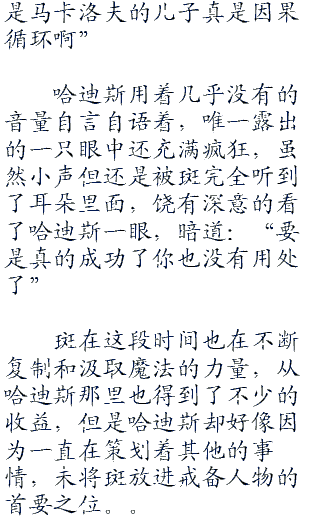 是马卡洛夫的儿子真是因果
循环啊”
哈迪斯用着几乎没有的
音量自言自语着，唯一露出
的一只眼中还充满疯狂，虽
然小声但还是被斑完全听到
了耳朵里面，饶有深意的看
了哈迪斯一眼，暗道：“要
是真的成功了你也没有用处
了”
斑在这段时间也在不断
复制和汲取魔法的力量，从
哈迪斯那里也得到了不少的
收益，但是哈迪斯却好像因
为一直在策划着其他的事
情，未将斑放进戒备人物的
首要之位。。